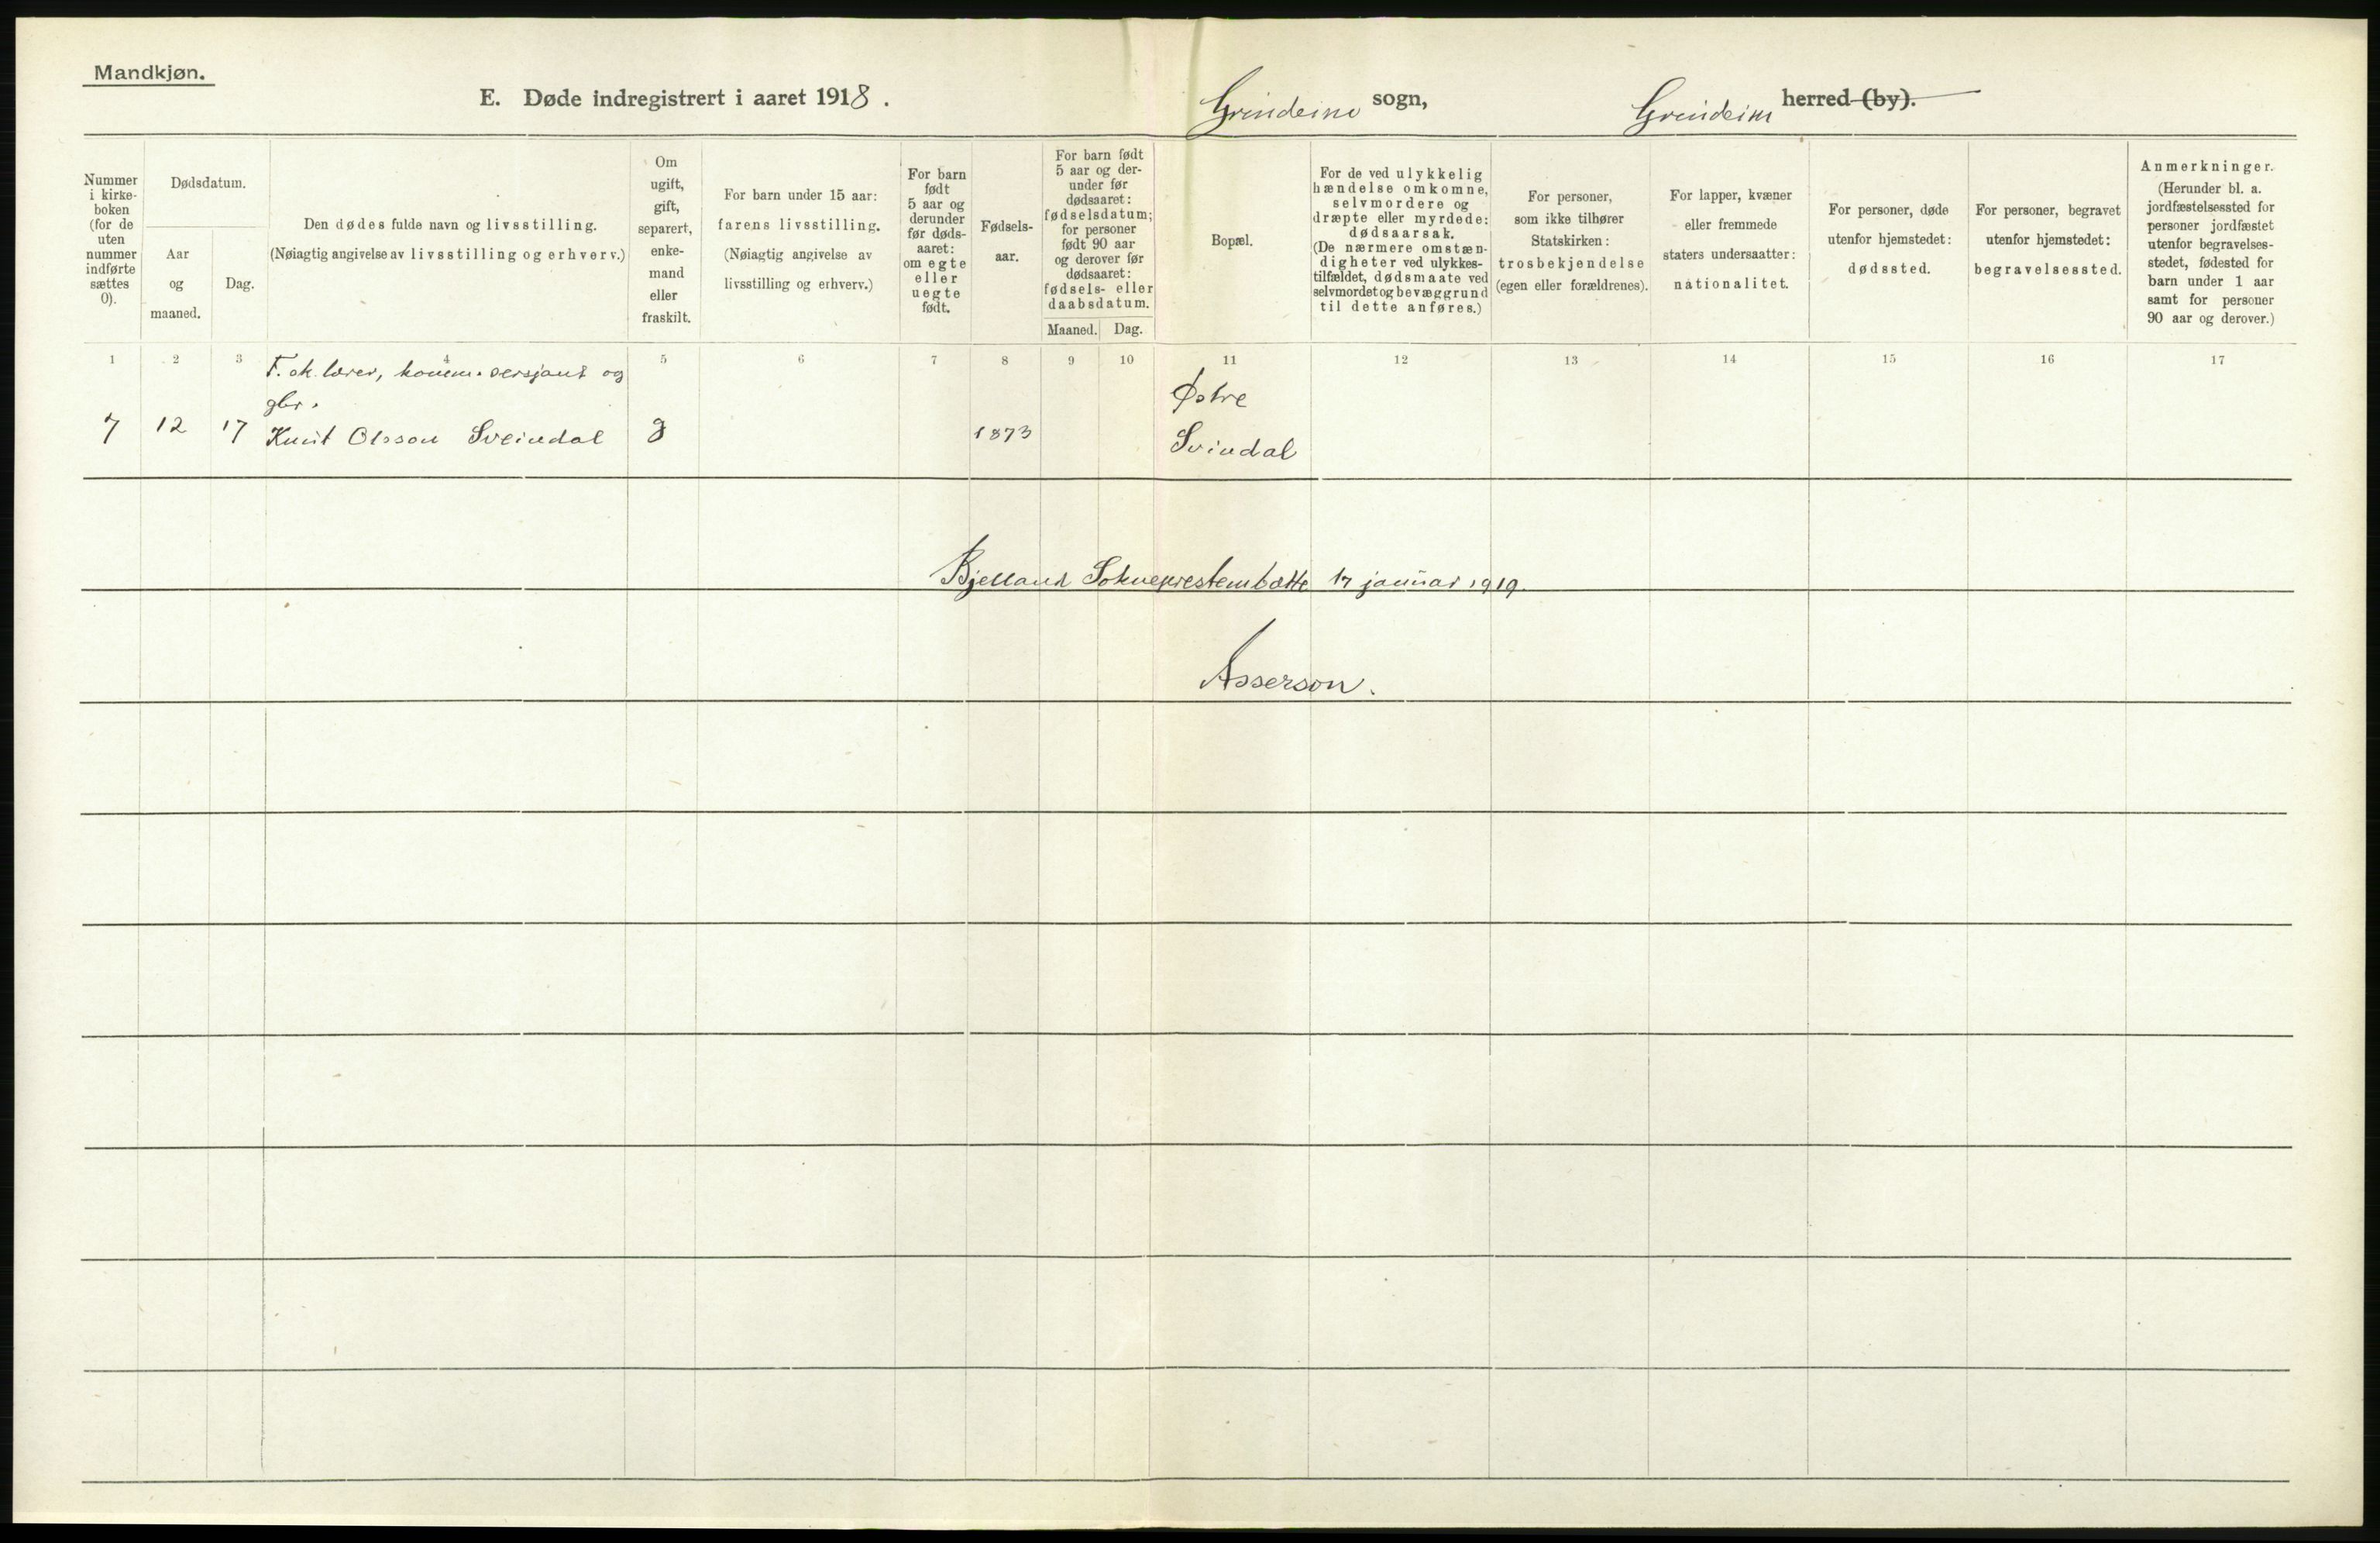 Mandkjøn.
E. Døde indregistrert i aaret 1918.
Grindeim sogn, Grindeim herred (by).
Nummer
i kirke-
boken
(for de
uten
nummer
indførte
sættes
0).
Dødsdatum.
Aar
og
maaned.
Dag.
Den dødes fulde navn og livsstilling.
(Nøiagtig angivelse av livsstilling og erhverv.)
Om
ugift,
gift,
separert,
enke-
mand
eller
fraskilt.
For barn under 15 aar:
farens livsstilling.
(Nøiagtig angivelse av
livsstilling og erhverv.)
For barn
født
5 aar og
derunder
før døds-
aaret:
om egte
eller
uegte
født.
Fødsels-
aar.
For barn født
5 aar og der-
under før
dødsaaret:
fødselsdatum;
for personer
født 90 aar
og derover før
dødsaaret:
fødsels- eller
daabsdatum.
Maaned. Dag.
Bopæl.
For de ved ulykkelig
hændelse omkomne,
selvmordere og
dræpte eller myrdede:
dødsaarsak.
(De nærmere omstæn-
digheter ved ulykkes-
tilfældet, dødsmaate ved
selvmordet og bevæggrund
til dette anføres.)
For personer,
som ikke tilhører
Statskirken:
trosbekjendelse
(egen eller forældrenes).
For lapper, kvæner
eller fremmede
staters undersaatter:
nationalitet.
For personer, døde
utenfor hjemstedet:
dødssted.
For personer, begravet
utenfor hjemstedet:
begravelsessted.
Anmerkninger.
(Herunder bl. a.
jordfæstelsessted for
personer jordfæstet
utenfor begravelses-
stedet, fødested for
barn under 1 aar
samt for personer
90 aar og derover.)
1 2 3 4 5 6 7 8 9 10 11 12 13 14 15 16 17
F. ok. lærer, komm. sersjant og
gbr.
Østre
7 12 17 Knut Olsson Sveindal g 1873 Svindal
Bjelland Sokneprestembætte 17 januar 1919.
Asserson.